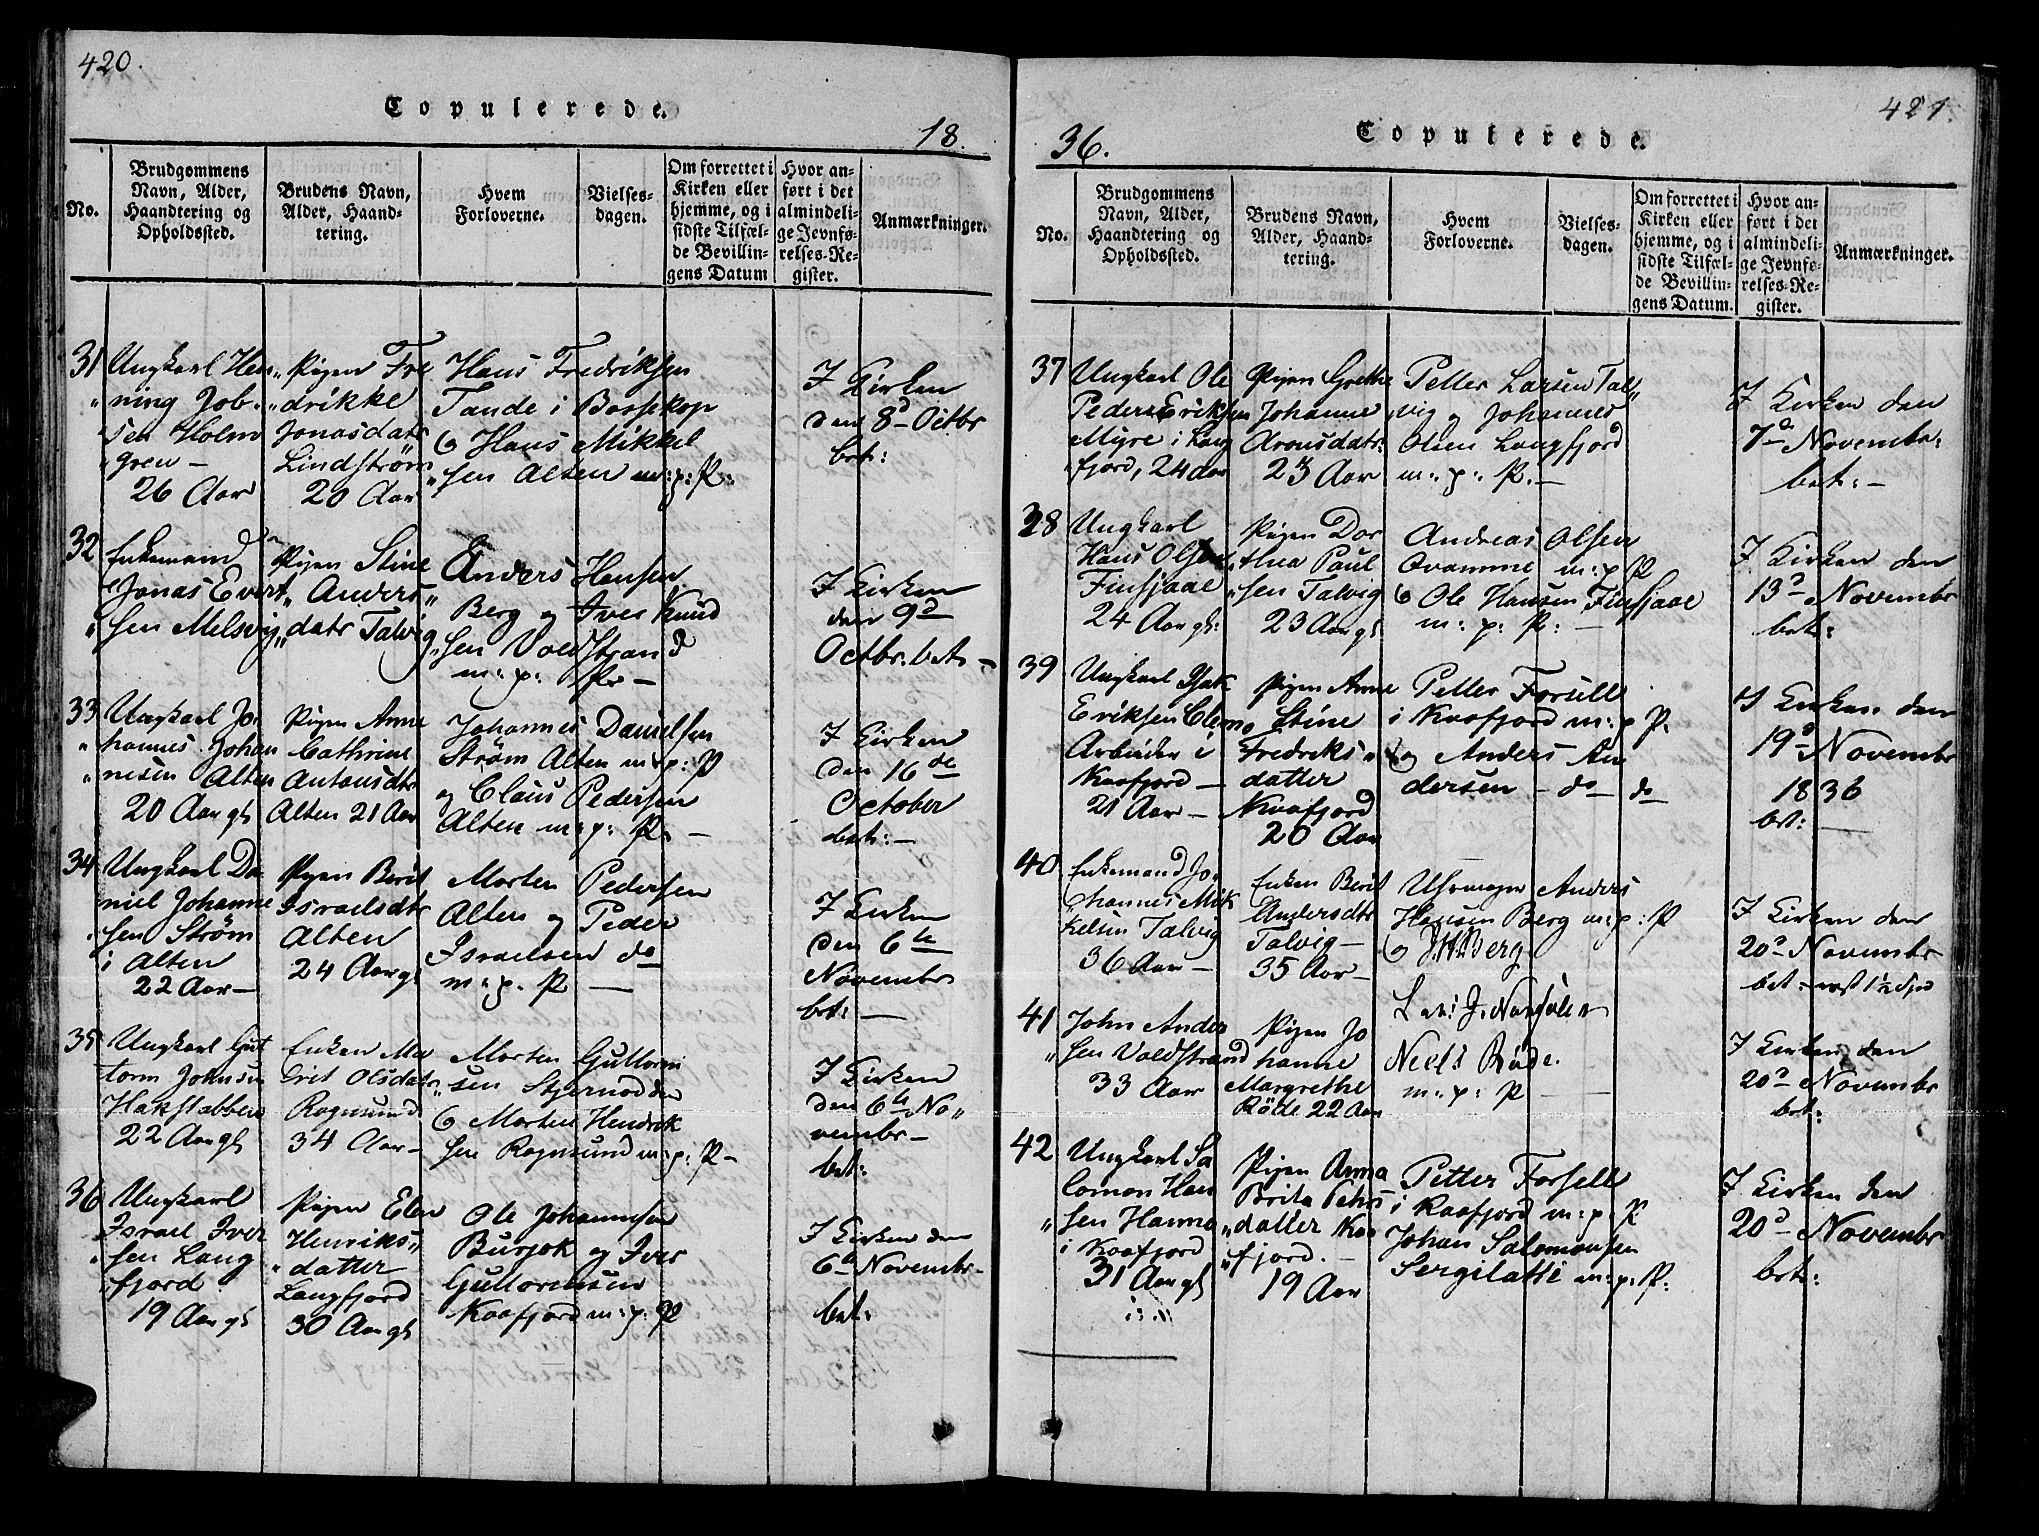 420.
Copulerede.
18.
No.
Brudgommens Navn, Alder, Haandtering og Opholdssted.
Brudens Navn, Alder, Haandtering.
Hvem Forloverne.
Vielsesdagen.
Om forrettet i Kirken eller hjemme, og i sidste Tilfælde Bevillingens Datum
Hvor anført i det almindelige Jevnførelses-Register.
Anmærkninger.
31
Ungkarl Hen
ning Job
sen Holm
gren —
26 Aar
Pigen Fre
drikke
Jonasdatr
Lindstrøm
20 Aar
Hans Fredriksen
Tande i Bossekop
og Hans Mikkel
sen Alten m: p: P:
I Kirken
den 8d Octbr
bet:
32
Enkemand
Jonas Evert
sen Melsvig
Pigen Stine
Anders
datr Talvig
Anders Hansen
Berg og Iver Knud
sen Voldstrand
m: p: P. —
I Kirken
den 9d
Octbr. bet —
33
Ungkarl Jo
hannes Johan
nesen Alten
20 Aar gl
Pigen Anne
Cathrine
Antonsdtr
Alten 21 Aar
Johannes Danielsen
Strøm Alten m: p: P
og Claus Pedersen
Alten m: p: P. —
I Kirken
den 16de
October
bet: —
34
Ungkarl Da
niel Johanne
sen Strøm
i Alten
22 Aar —
Pigen Berit
Israelsdtr
Alten
24 Aar gl
Morten Pedersen
Alten og Peder
Israelsen do
m: p. P —
I Kirken
den 6te
Novembr
bet: —
35
Ungkarl Gut
torm Johnsen
Hakstabben
22 Aar gl
Enken Ma
rit Olsdatr
Rognsund
34 Aar —
Morten Guttorm
sen Stjernodden
og Morten Hendrik
sen Rognsund m: p: P —
I Kirken
den 6te No
vembr —
bet:
36
Ungkarl
Israel Iver
sen Lang
fjord
19 Aar gl
Pigen Elen
Henriks
datter
Langfjord
30 Aar gl
Ole Johannesen
Burjok og Iver
Guttormsen
Kaafjord m: p: P
I Kirken den
6te Novembr —
bet:
421.
Copulerede.
36.
No.
Brudgommens Navn, Alder, Haandtering og Opholdssted.
Brudens Navn, Alder, Haandtering.
Hvem Forloverne.
Vielsesdagen.
Om forrettet i Kirken eller hjemme, og i sidste Tilfælde Bevillingens Datum.
Hvor anført i det almindelige Jevnførelses-Register.
Anmærkninger.
37
Ungkarl Ole
Peder Eriksen
Myre i Lang
fjord, 24 aar
Pigen Grethe
Johanne
Aronsdatr.
23 Aar
Petter Larsen Tal
vig og Johannes
Olsen Langfjord
m: p: P. —
I Kirken den
7de Novembr:
bet: —
38
Ungkarl
Hans Olsen
Finsjaae
24 Aar gl:
Pigen Dor
thea Paul
sen Talvig
23 Aar gl
Andreas Olsen
Qvamme m: p: P
og Ole Hansen Finsjaae
m: p: P: —
I Kirken den
13d Novembr
bet:
39
Ungkarl Isak
Eriksen Clemo
Arbeider i
Kaafjord —
21 Aar —
Pigen Anne
Stine
Fredriks
datter
Kaafjord
20 Aar
Petter Forsell
i Kaafjord m: p P.
og Anders An
dersen — do — do
I Kirken den
19d Novembr
1836
bet: —
40
Enkemand Jo
hannes Mik
kelsen Talvig
36 Aar —
Enken Berit
Andersdtr
Talvig —
35 Aar —
Anders
Hansen Berg m: p: P
og Berg
I Kirken den
20d Novembr
bet:
41
John Ander
sen Voldstrand
33 Aar
Pigen Jo
hanne
Margrethe
Röde 22 Aar
Neels Röde.
m: p: P —
I Kirken den
20d Novembr
bet:
42
Ungkarl Sa
lomon Han
sen Hanno
i Kaafjord
31 Aar gl
Pigen Anna
Brita Pehrs
datter Kaa
fjord. —
19 Aar
Petter Forsell
i Kaafjord m: p: P
Johan Salomonsen
Sergilatti m: p: P:
I Kirken den
20d Novembr
bet: